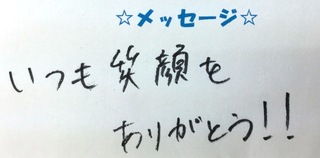 ☆メッセージ☆
いつも笑顔を
ありがとう!!